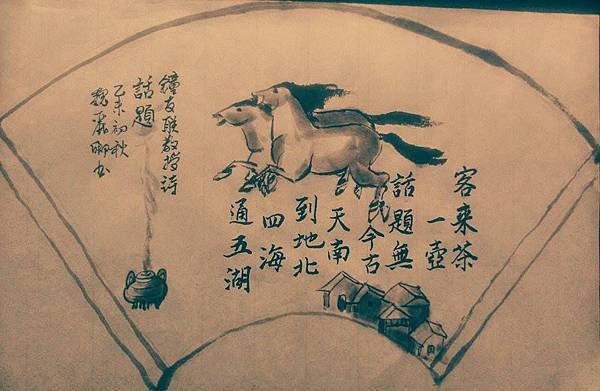 客来茶
一壺
話題無
民今古
天南
到地北
四海
通五湖
鐘友联教授詩
話題
乙未初秋
魏麗卿书